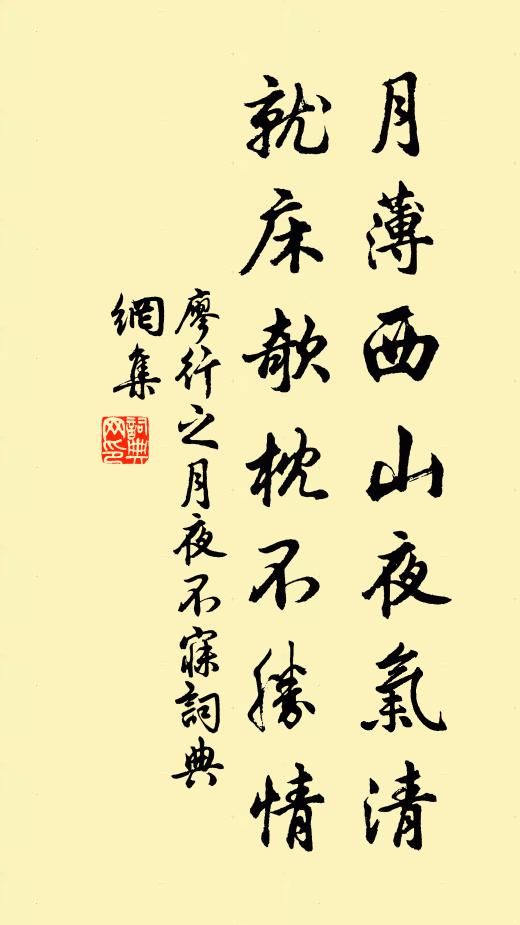 月薄西山夜氣清
就床欹枕不勝情
廖行之月夜不寐詞典
網集
詞典
网印